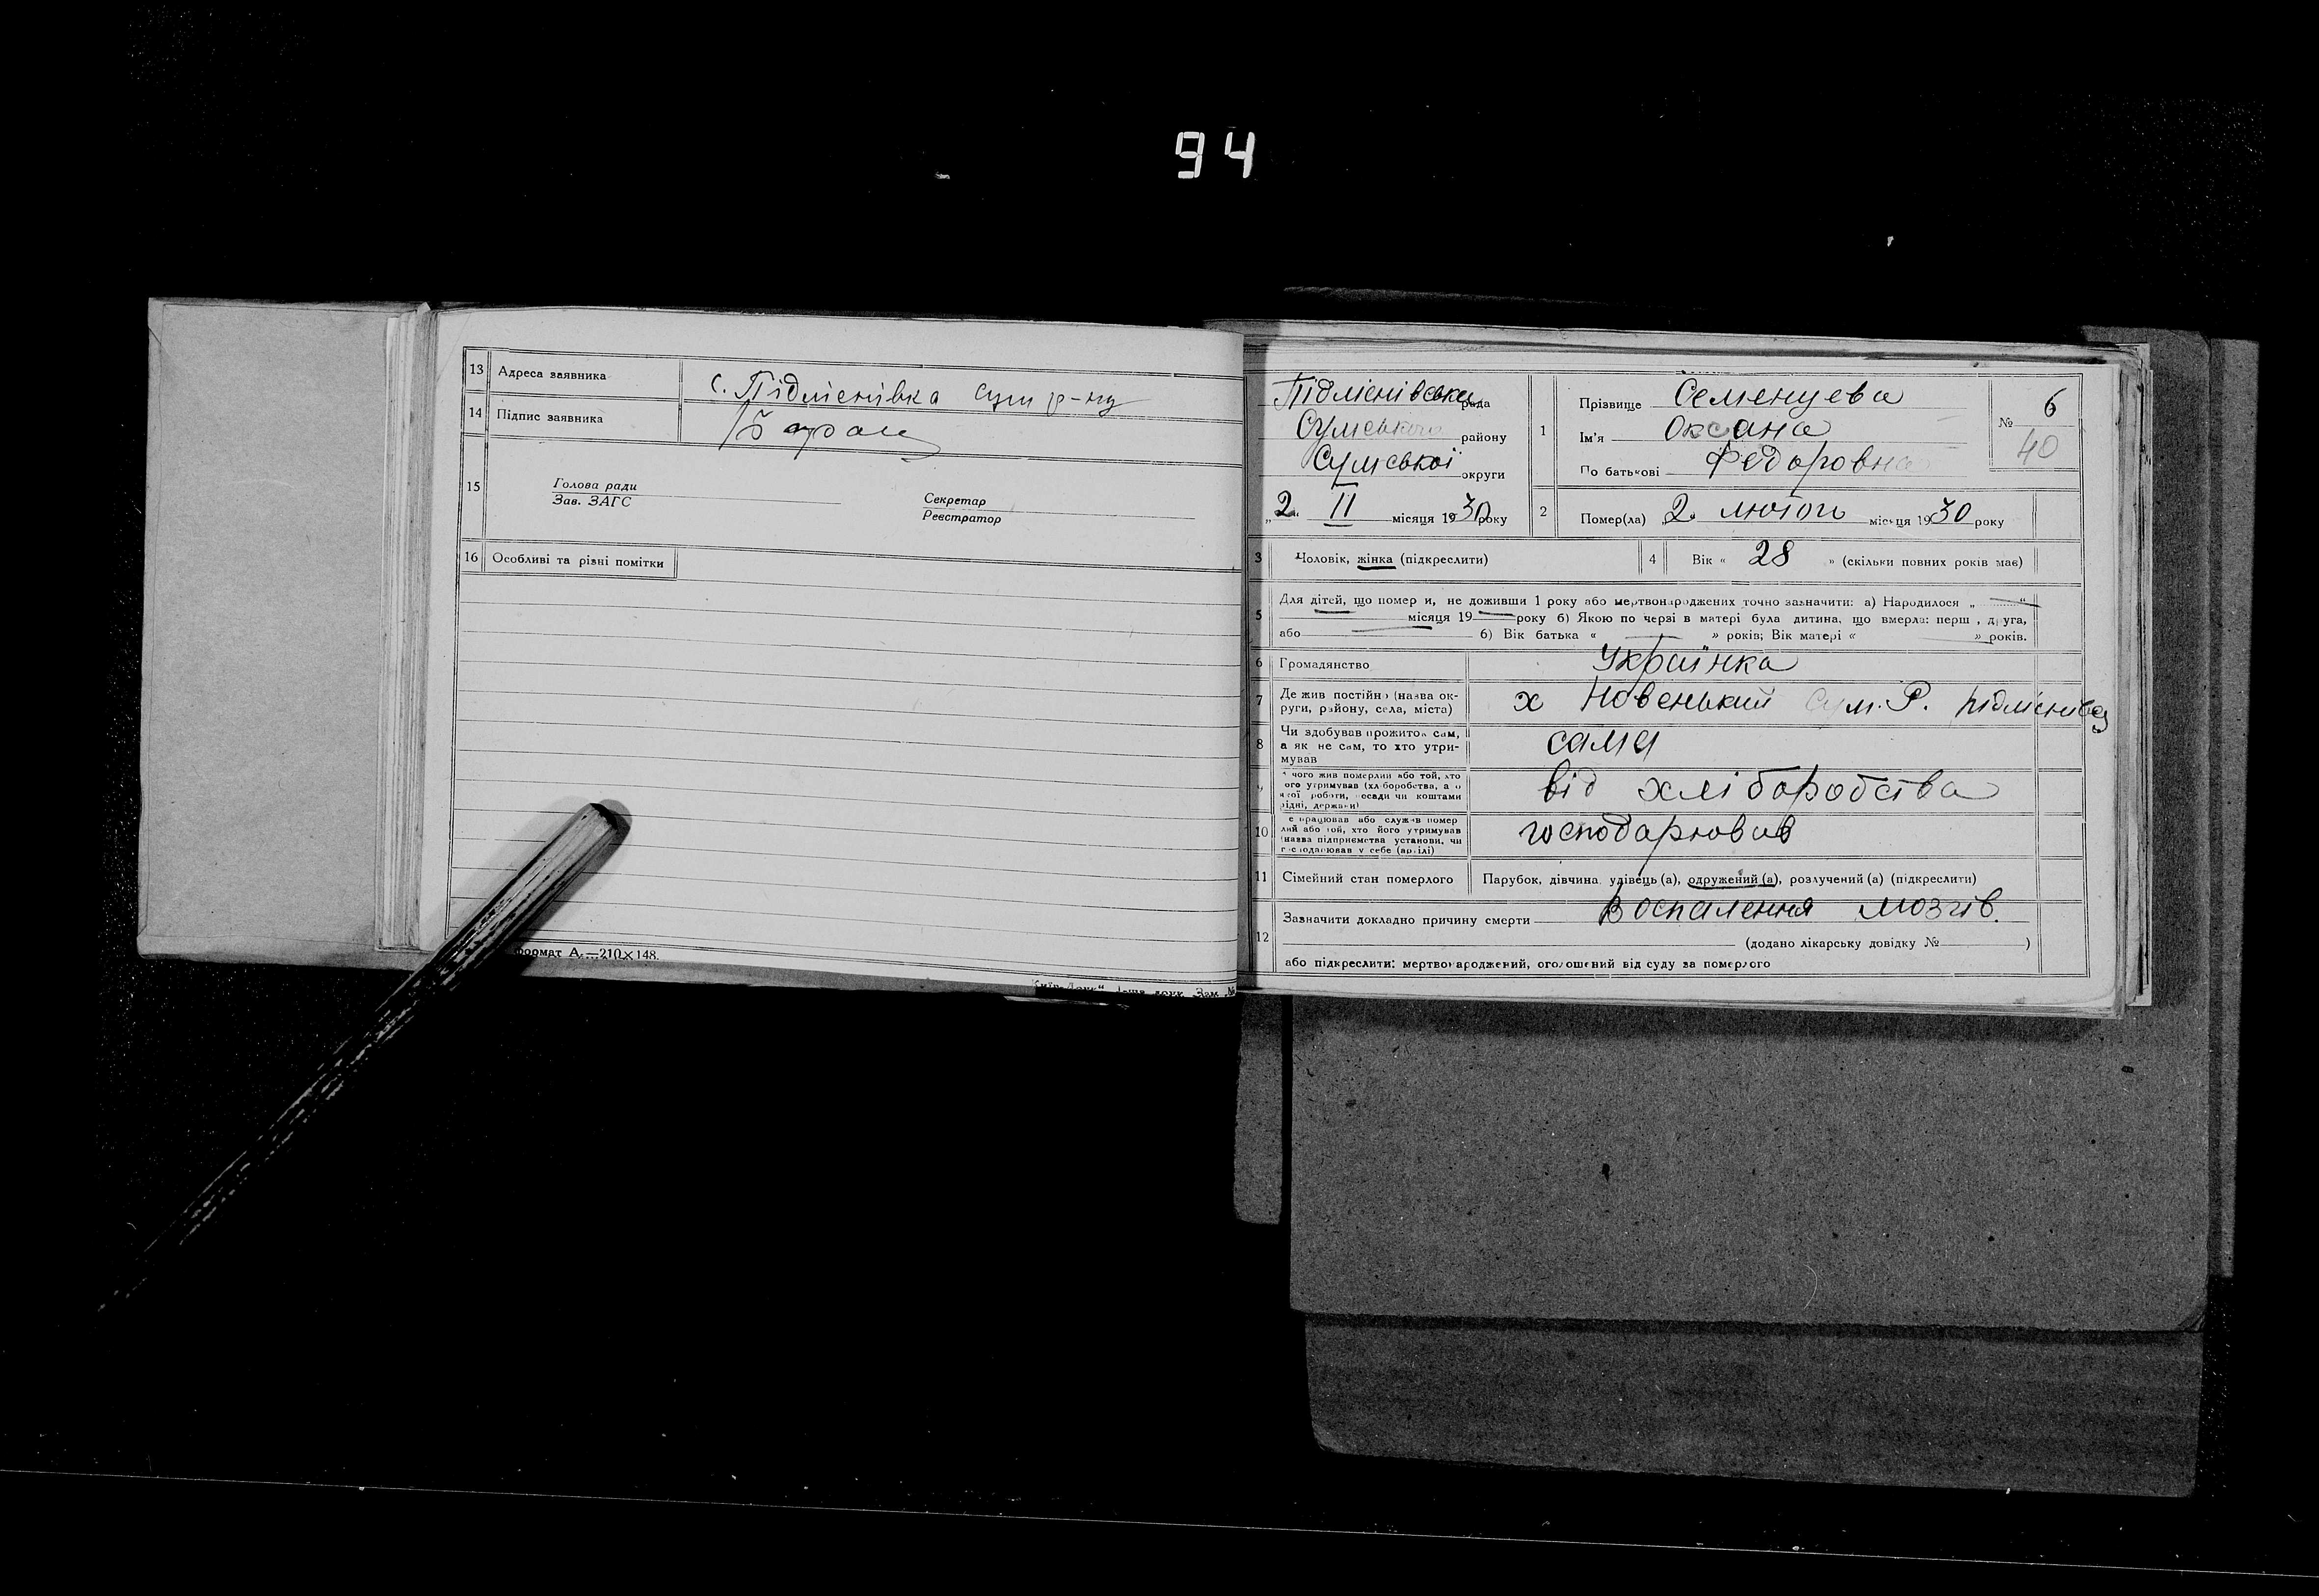 94
13 Адреса заявника с. Підліснівка Сум р-ну
14 Підпис заявника
15 Голова ради
Зав. ЗАГС
Секретар
Реєстратор
16 Особливі та різні помітки
Формат А₅—210×148.
Підліснівська рада
Сумського району
Сумської округи
„2" II місяця 1930 року
1 Прізвище Семенцева
Ім'я Оксана
По батькові Федоровна
№ 6
40
2 Помер(ла) 2. лютого місяця 1930 року
3 Чоловік, жінка (підкреслити)
4 Вік « 28 » (скільки повних років має)
5 Для дітей, що померли, не доживши 1 року або мертвонароджених точно зазначити: а) Народилося „ — "
— місяця 19— року б) Якою по черзі в матері була дитина, що вмерла: перша, друга,
або — 6) Вік батька « — » років; Вік матері « — » років.
6 Громадянство Українка
7 Де жив постійно (назва ок-
руги, району, села, міста) х Новенький Сум. Р.
8 Чи здобував прожиток сам,
а як не сам, то хто утри-
мував сама
9 З чого жив померлий або той, хто
його утримував (хліборобства, або
якої роботи, посади чи коштами
рідні, держави) від хліборобства
10 Де працював або служив помер
лий або той, хто його утримував
(назва підприємства установи, чи
господарював у себе (артілі) господарював
11 Сімейний стан померлого Парубок, дівчина, удівець (а), одружений (а), розлучений (а) (підкреслити)
12 Зазначити докладно причину смерти Воспалення мозгів.
(додано лікарську довідку № )
або підкреслити: мертвонароджений, оголошений від суду за померлого